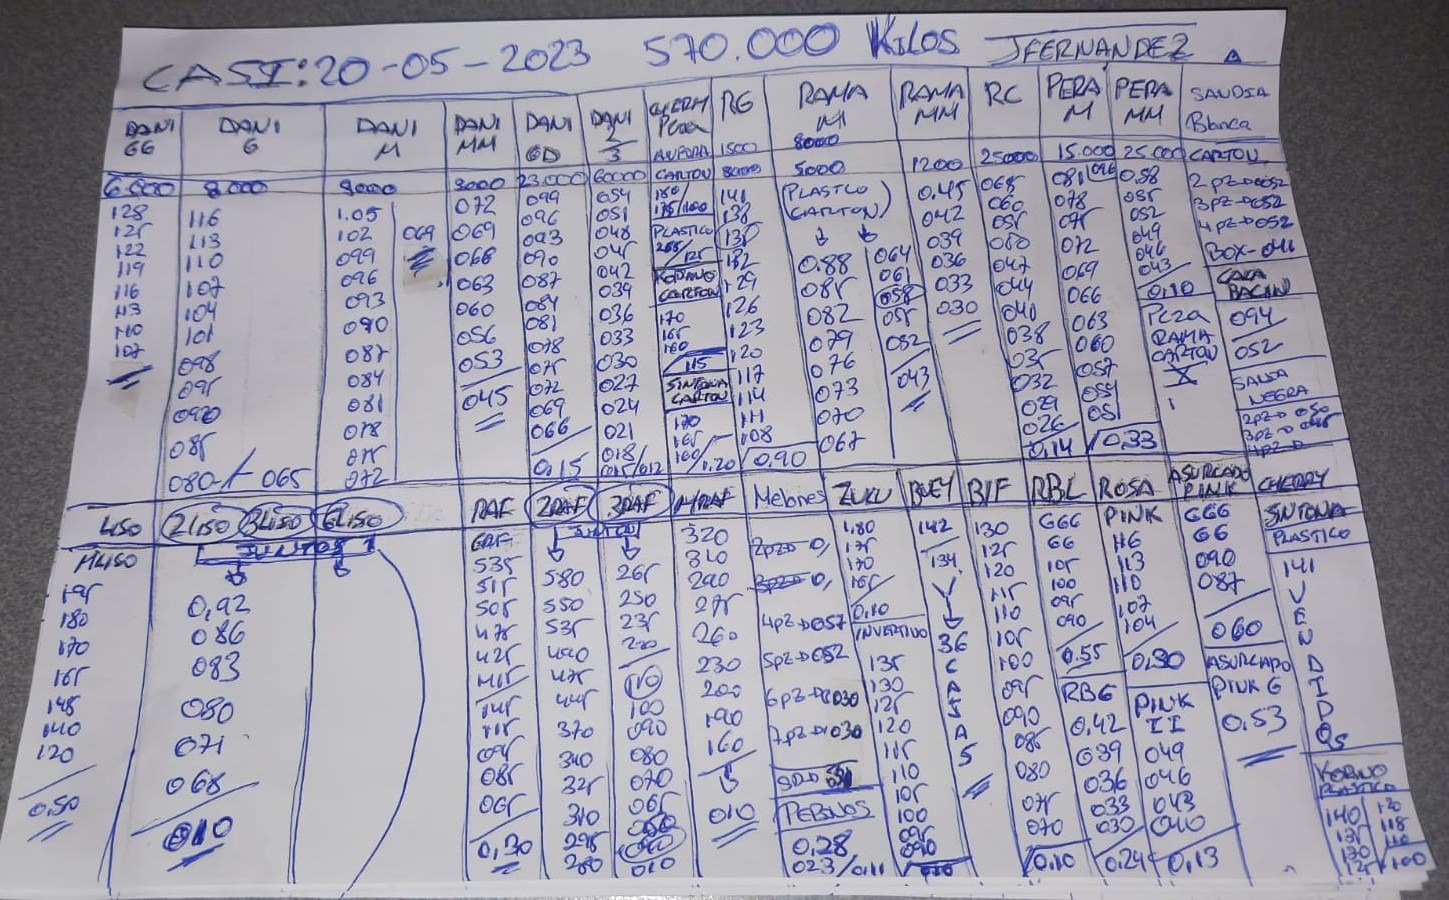 CASI: 20-05-2023 570.000 KILOS JFERNANDEZ
DANI GG
6.000
128
125
122
119
116
113
110
107
DANI G
8000
116
113
110
107
104
101
098
095
090
085
080-/-065
DANI M
8000
1.05
102
099
096
093
090
087
084
081
078
075
072
069
DANI MM
8000
072
069
066
063
060
056
053
045
DANI GD
23.000
099
096
093
090
087
084
081
078
075
072
069
066
0,15
DANI 2/3
60000
054
051
048
045
042
039
036
033
030
027
024
021
018
015/012
CHERRY
PERA
CARTON
180/
175/160
PLASTICO
CARTON
170
165
160
115
SINTONIA
CARTON
170
165
160/1.20
RG
1500
8000
141
138
135
132
129
126
123
120
117
114
111
108
0.90
RAMA M
8000
5000
(PLASTICO
CARTON)
0.88
085
082
079
076
073
070
067
064
061
058
055
052
043
RAMA MM
1200
0.45
042
039
036
033
030
RC
25000
065
060
055
050
047
044
041
038
035
032
029
026
0,14
PERA M
15.000
081
078
075
072
069
066
063
060
057
054
051
0,33
PERA MM
25.000
0.58
055
052
049
046
043
0,10
RAMA
CARTON
X
SANDIA
Blanca
CARTON
2pz→052
3pz→052
4pz→052
BOX-041
094
052
NEGRA
LISO
MLISO
195
180
170
165
148
140
120
0,50
2LISO 3LISO 6LISO
JUNTOS
0,92
086
083
080
071
068
010
RAF
535
515
505
475
425
415
145
115
095
085
065
0,30
2RAF
JUNTO
580
550
535
490
475
445
370
340
325
310
295
280
3RAF
265
250
235
220
110
100
090
080
070
065
010
MRAF
320
310
290
275
260
230
200
190
160
010
Melones
4pz→057
5pz→052
6pz→030
7pz→030
PEPINOS
0.28
023/0,11
ZUKU
1.80
175
165
0,10
INVERTIVO
135
130
125
120
115
110
105
100
095
090
BUEY
142
134
36
C
A
J
A
S
BIF
130
125
120
115
110
105
100
095
090
085
080
075
070
RBL
666
66
105
100
095
090
0.55
RBG
0.42
039
036
033
030
0,10
ROSA
PINK
116
113
110
107
104
0,30
PINK
II
049
046
043
040
0,24
ASURCADO
PINK
666
66
090
087
060
ASURCADO
PINK G
0.53
0,13
CHERRY
SINTONIA
PLASTICO
141
V
E
N
D
I
D
OS
PLASTICO
140
135
130
125
120
118
110
100